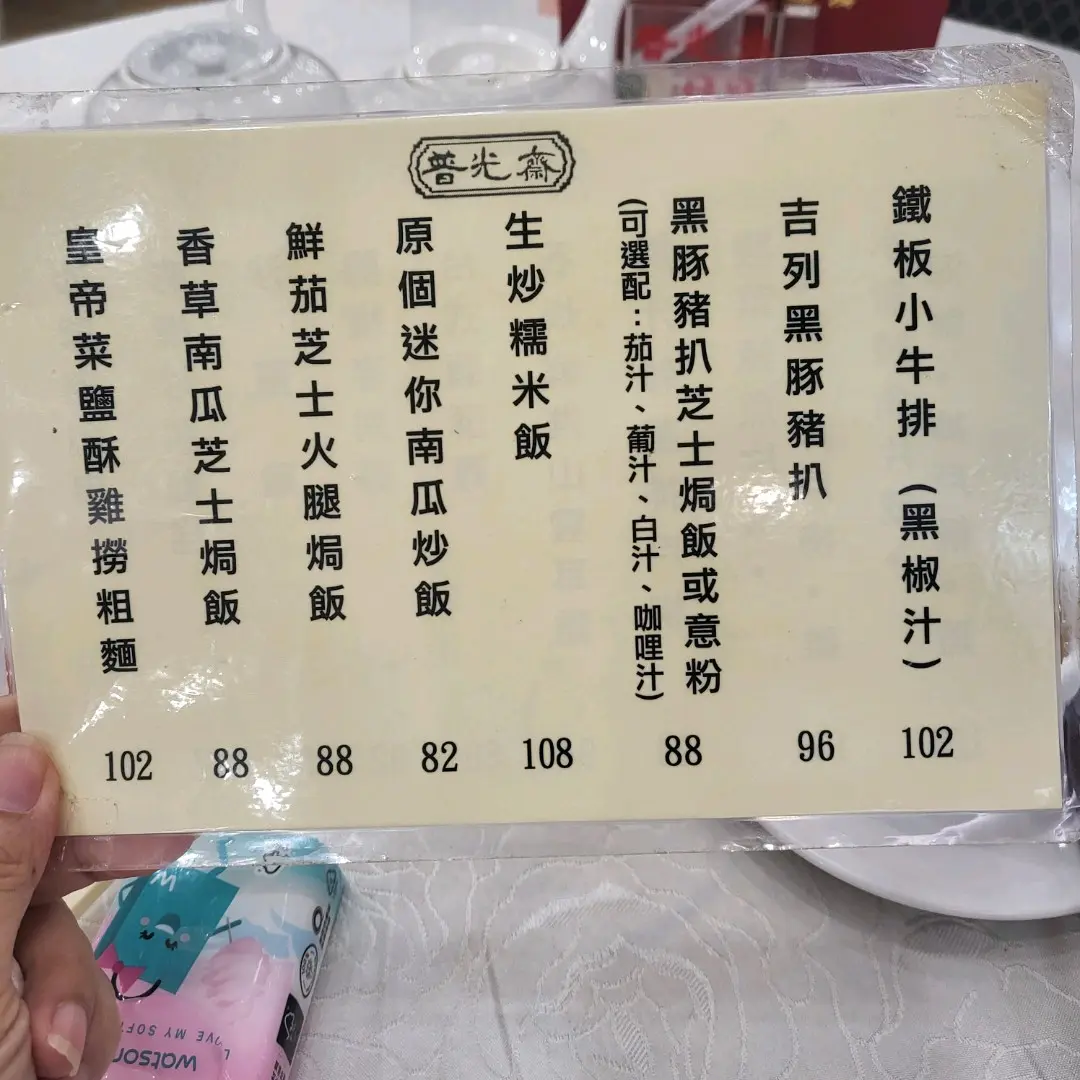 普光齋
鐵板小牛排（黑椒汁）
102
吉列黑豚豬扒
96
黑豚豬扒芝士焗飯或意粉
(可選配：茄汁、葡汁、白汁、咖哩汁)
88
生炒糯米飯
108
原個迷你南瓜炒飯
82
鮮茄芝士火腿焗飯
88
香草南瓜芝士焗飯
88
皇帝菜鹽酥雞撈粗麵
102
LOVE MY SOFT
watson